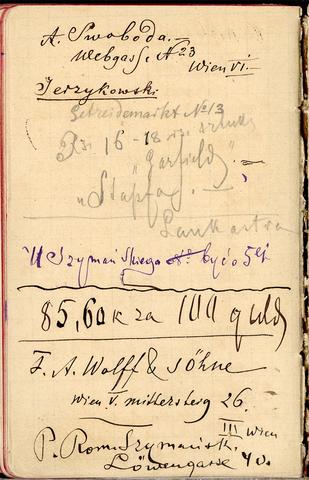 A. Swoboda.
Webgasse № 23
Wien VI.
Jerzykowski
Getreidemarkt № 13
16 - 18
"Garfield"
"Stapfa"
Lankastra
U Szymańskiego być o 5ej
85,60 K za 100 guld
F. A. Wolff & Söhne
Wien V. mittersteig 26.
III Wien
P. Rom. Szymański.
Löwengasse 40.